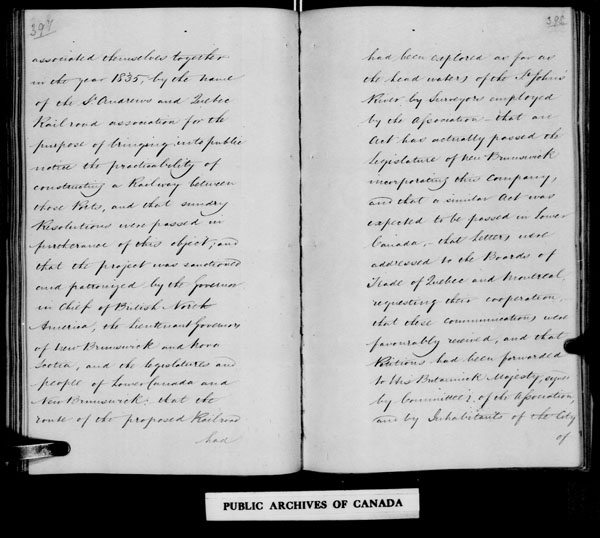 397
associated themselves together
in the year 1835, by the name
of the St Andrews and Quebec
Railroad association for the
purpose of bringing into public
notice the practicability of
constructing a Railway between
those Ports, and that sundry
Resolutions were passed in
furtherance of this object, and
that the project was sanctioned
and patronized by the Governor
in Chief of British North
America, the Lieutenant Governors
of New Brunswick and Nova
Scotia, and the Legislatures and
people of Lower Canada and
New Brunswick; that the
route of the proposed Railroad
had
398
had been explored as far as
the head waters of the St Johns
River by Surveyors employed
by the Association that an
Act has actually passed the
Legislature of New Brunswick
incorporating this Company,
and that a similar Act was
expected to be passed in Lower
Canada, that Letters were
addressed to the Boards of
Trade of Quebec and Montreal,
requesting their cooperation,
that these communications were
favourably received, and that
Petitions had been forwarded
to His Britannick Majesty,
by Committees of the Association,
and by Inhabitants of the City
of
PUBLIC ARCHIVES OF CANADA